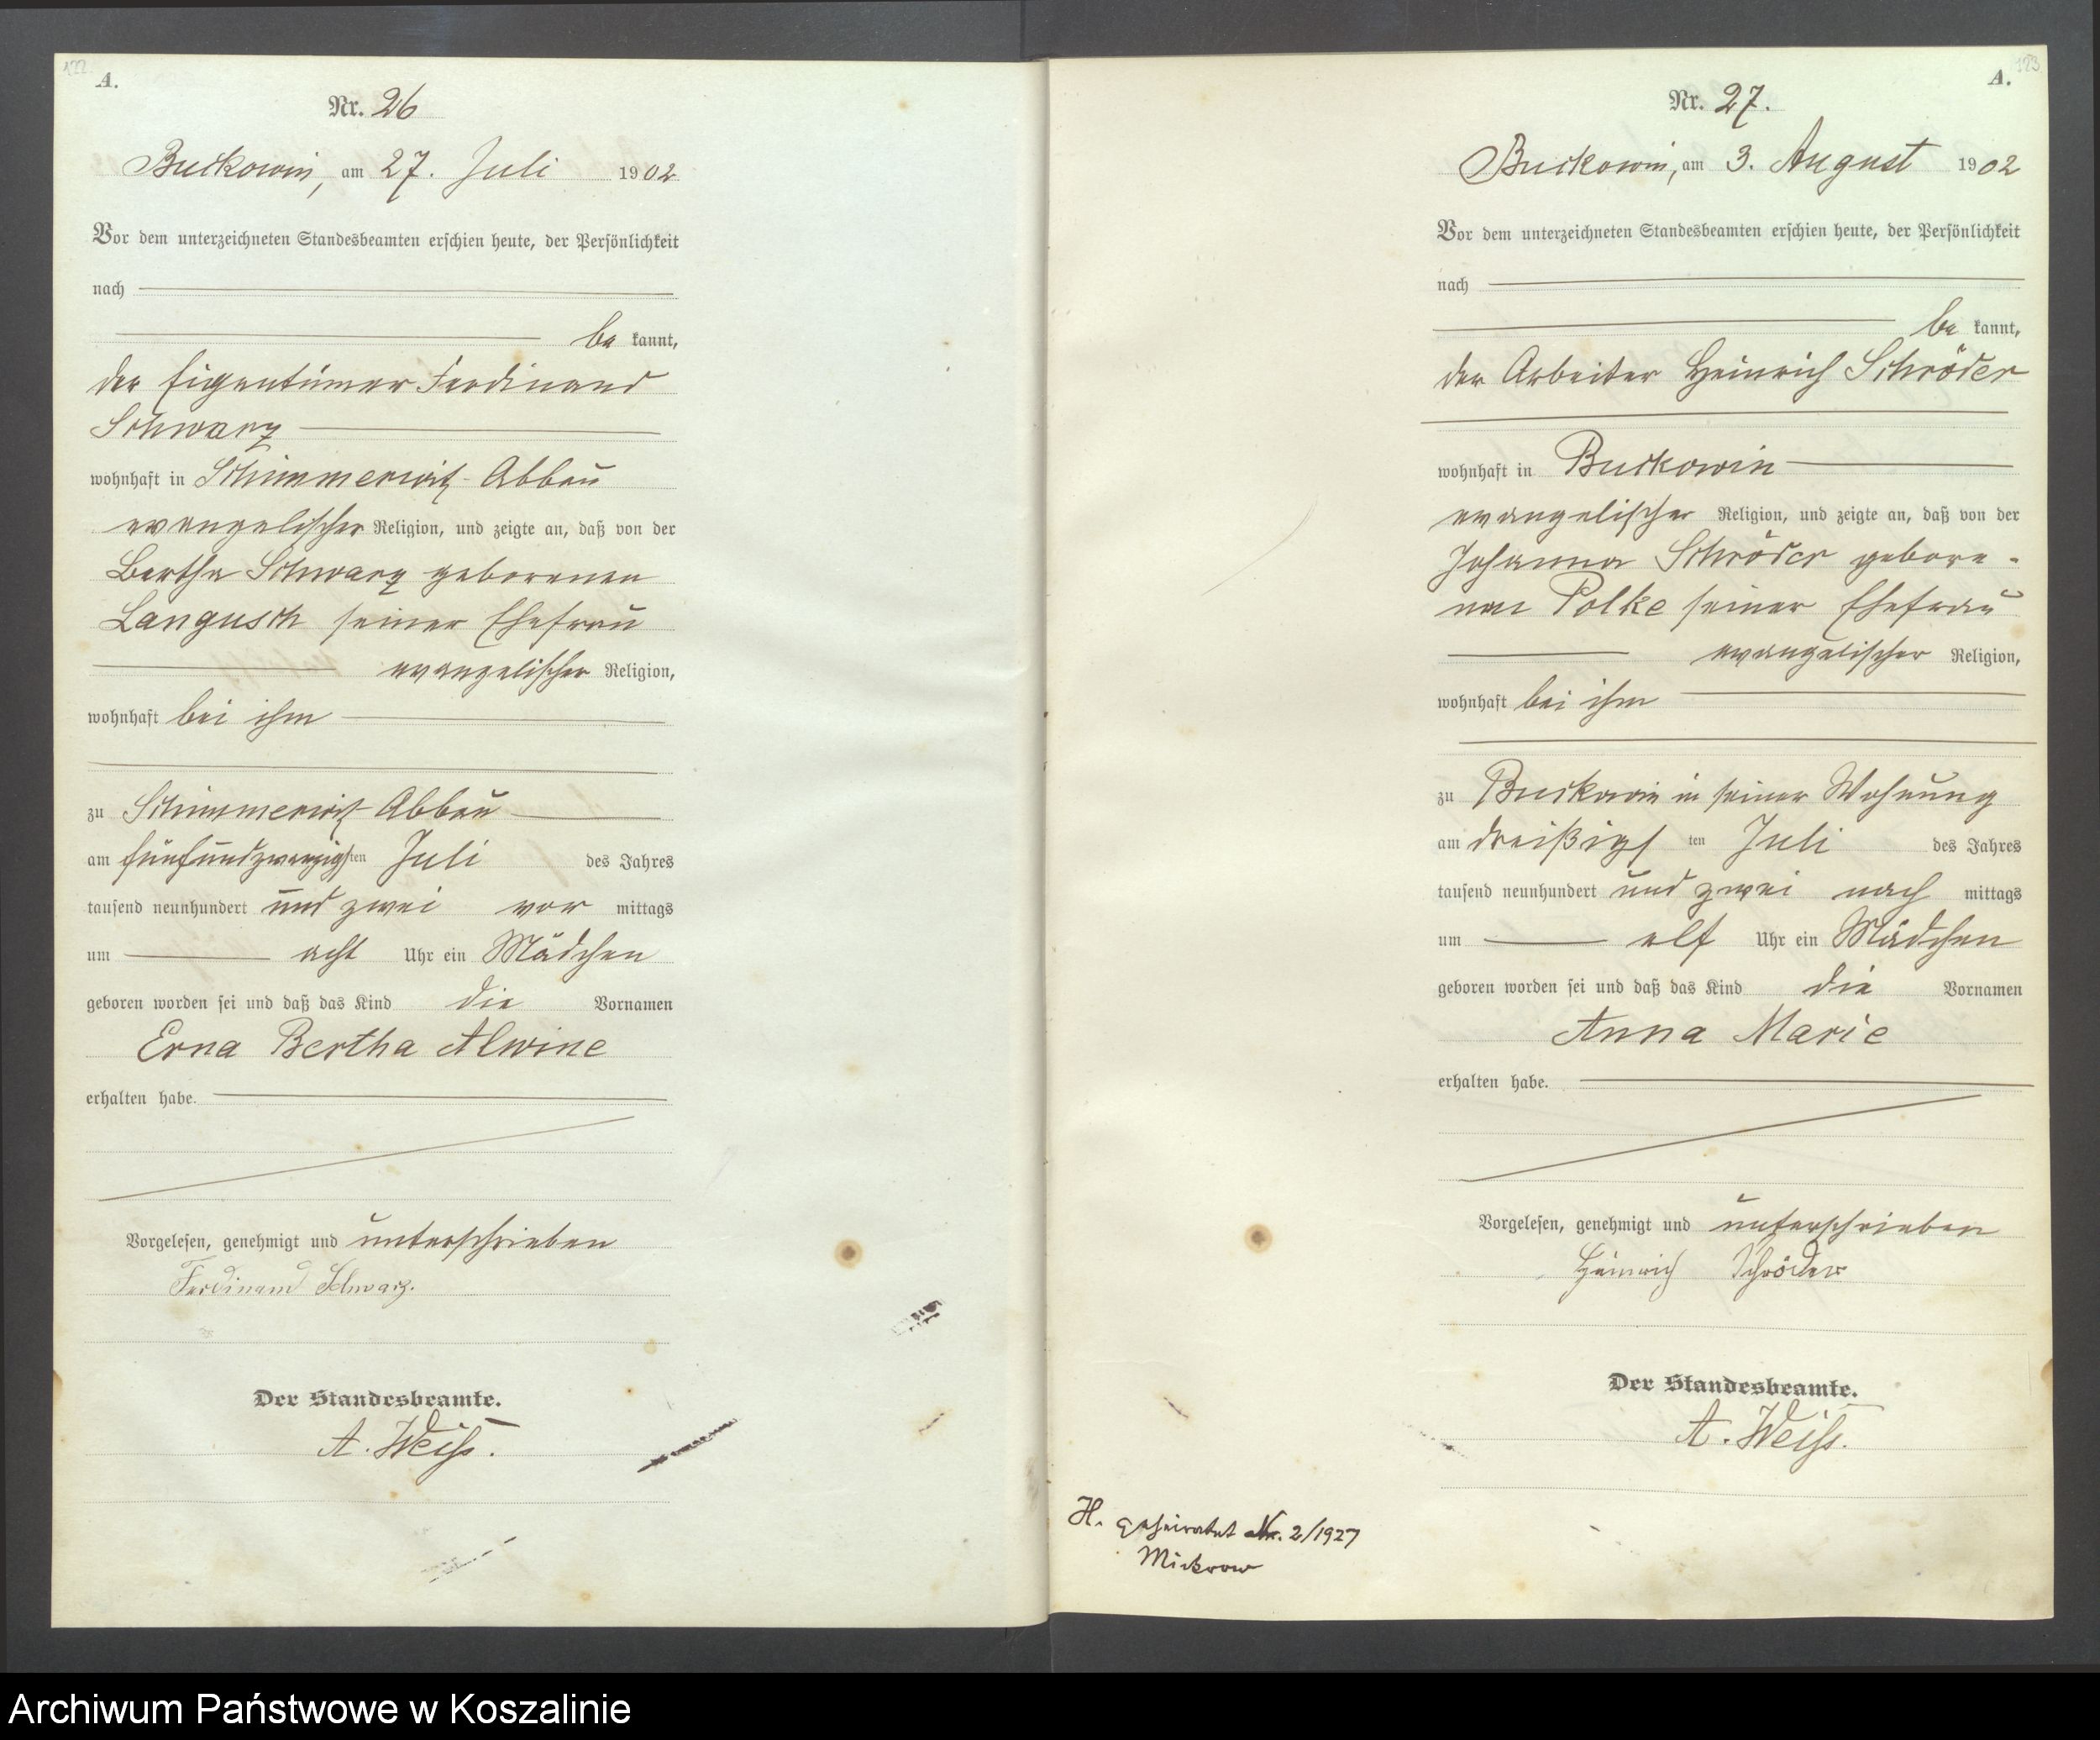 122
A.
Nr. 26
Buckowin, am 27. Juli 1902
Vor dem unterzeichneten Standesbeamten erschien heute, der Persönlichkeit
nach
be kannt,
der Eigentümer Ferdinand
Schwarz
wohnhaft in Schimmerwitz-Abbau
evangelischer Religion, und zeigte an, daß von der
Bertha Schwarz geborenen
Langusch seiner Ehefrau
evangelischer Religion,
wohnhaft bei ihm
zu Schimmerwitz-Abbau
am fünfundzwanzigsten Juli des Jahres
tausend neunhundert und zwei vor mittags
um acht Uhr ein Mädchen
geboren worden sei und daß das Kind die Vornamen
Erna Bertha Alwine
erhalten habe.
Vorgelesen, genehmigt und unterschrieben
Ferdinand Schwarz.
Der Standesbeamte.
A. Weiß.
123
A.
Nr. 27.
Buckowin, am 3. August 1902
Vor dem unterzeichneten Standesbeamten erschien heute, der Persönlichkeit
nach
be kannt,
der Arbeiter Heinrich Schröder
wohnhaft in Buckowin
evangelischer Religion, und zeigte an, daß von der
Johanna Schröder gebore-
nen Polke seiner Ehefrau
evangelischer Religion,
wohnhaft bei ihm
zu Buckowin in seiner Wohnung
am dreißigsten Juli des Jahres
tausend neunhundert und zwei nach mittags
um elf Uhr ein Mädchen
geboren worden sei und daß das Kind die Vornamen
Anna Marie
erhalten habe.
Vorgelesen, genehmigt und unterschrieben
Heinrich Schröder
Der Standesbeamte.
A. Weiß.
H. geheiratet Nr. 2/1927
Mickrow
Archiwum Państwowe w Koszalinie